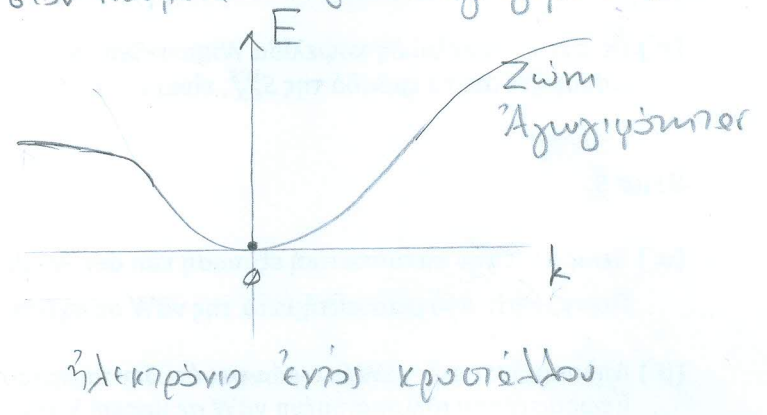 E
Ζώνη
Ἀγωγιμότητας
k
0
ἠλεκτρόνιο ἐντὸς κρυστάλλου